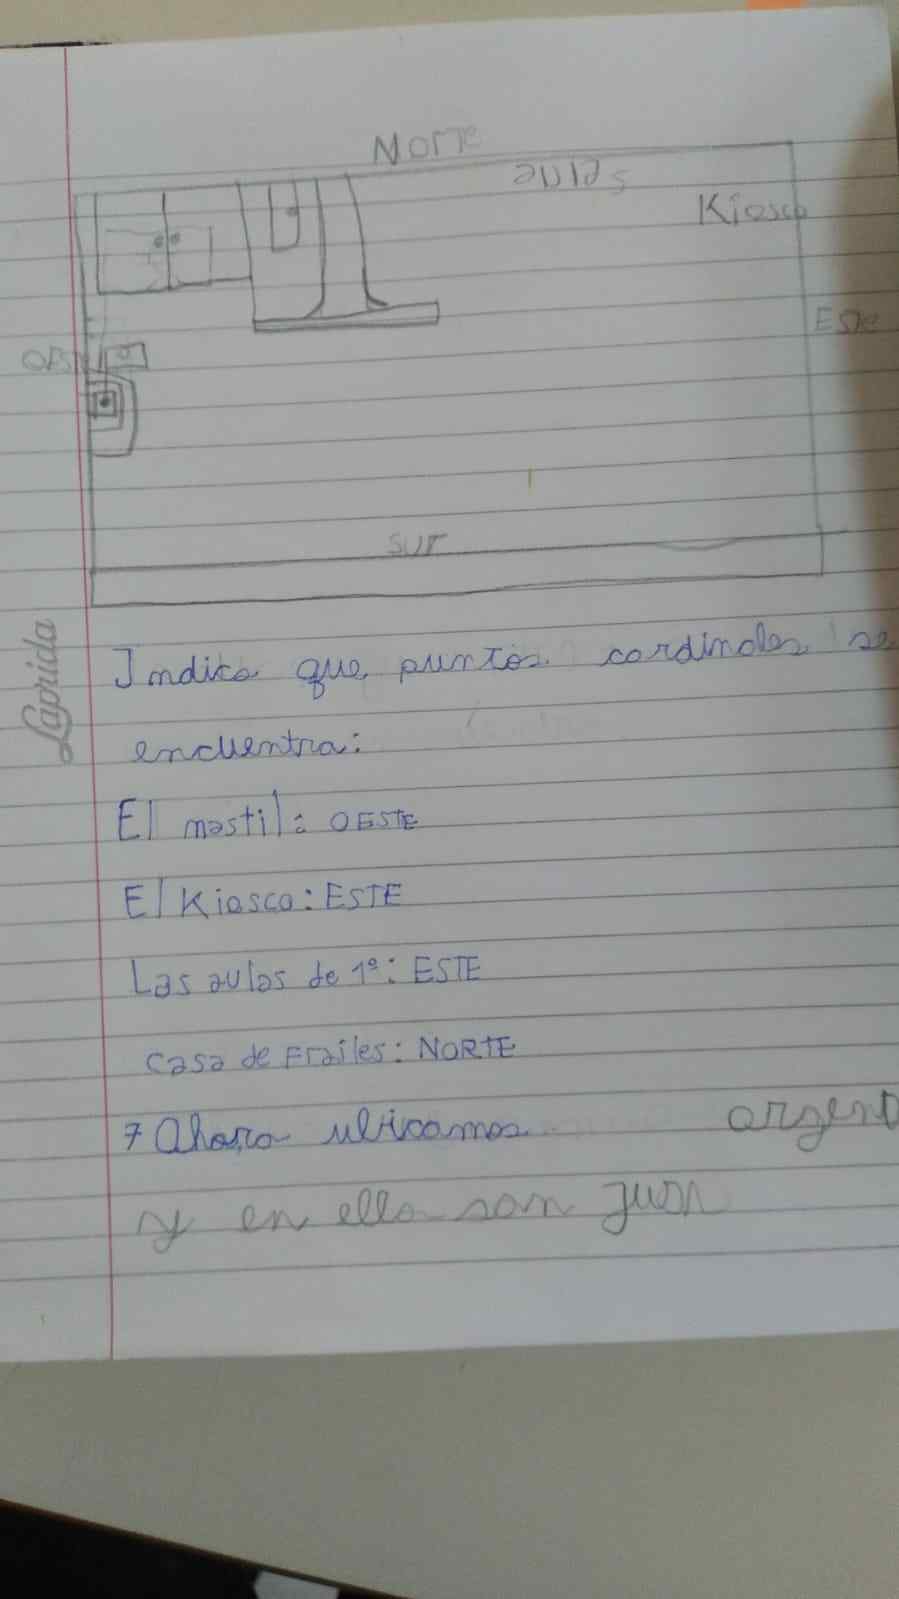 Norte
aulas
Kiosco
Este
OES
sur
Laprida
Indica que puntos cardinales se
encuentra:
El mastil: OESTE
El Kiosco: ESTE
Las aulas de 1º: ESTE
casa de Frailes: NORTE
7 Ahora ubicamos argent
y en ella san Juan